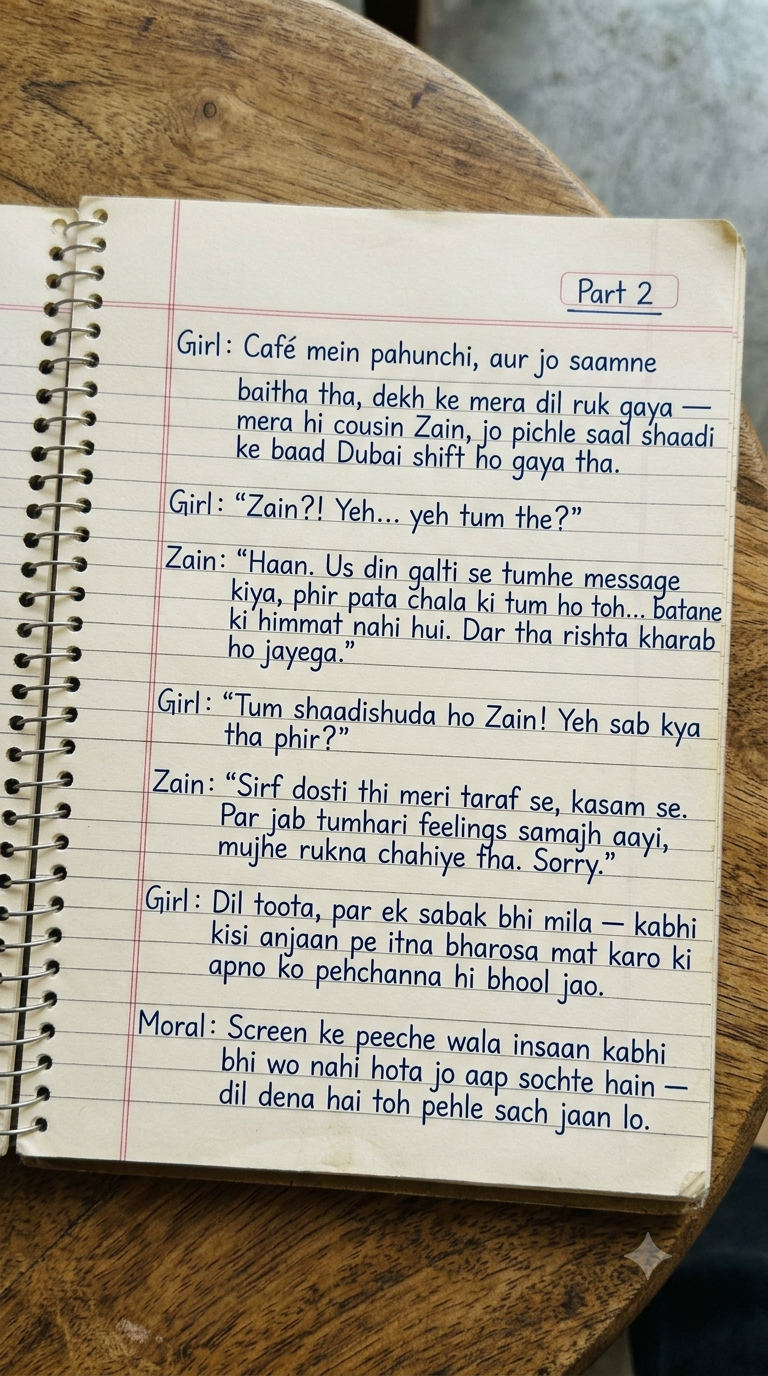 Part 2
Girl: Café mein pahunchi, aur jo saamne
baitha tha, dekh ke mera dil ruk gaya —
mera hi cousin Zain, jo pichle saal shaadi
ke baad Dubai shift ho gaya tha.
Girl: “Zain?! Yeh... yeh tum the?”
Zain: “Haan. Us din galti se tumhe message
kiya, phir pata chala ki tum ho toh... batane
ki himmat nahi hui. Dar tha rishta kharab
ho jayega.”
Girl: “Tum shaadishuda ho Zain! Yeh sab kya
tha phir?”
Zain: “Sirf dosti thi meri taraf se, kasam se.
Par jab tumhari feelings samajh aayi,
mujhe rukna chahiye tha. Sorry.”
Girl: Dil toota, par ek sabak bhi mila — kabhi
kisi anjaan pe itna bharosa mat karo ki
apno ko pehchanna hi bhool jao.
Moral: Screen ke peeche wala insaan kabhi
bhi wo nahi hota jo aap sochte hain —
dil dena hai toh pehle sach jaan lo.